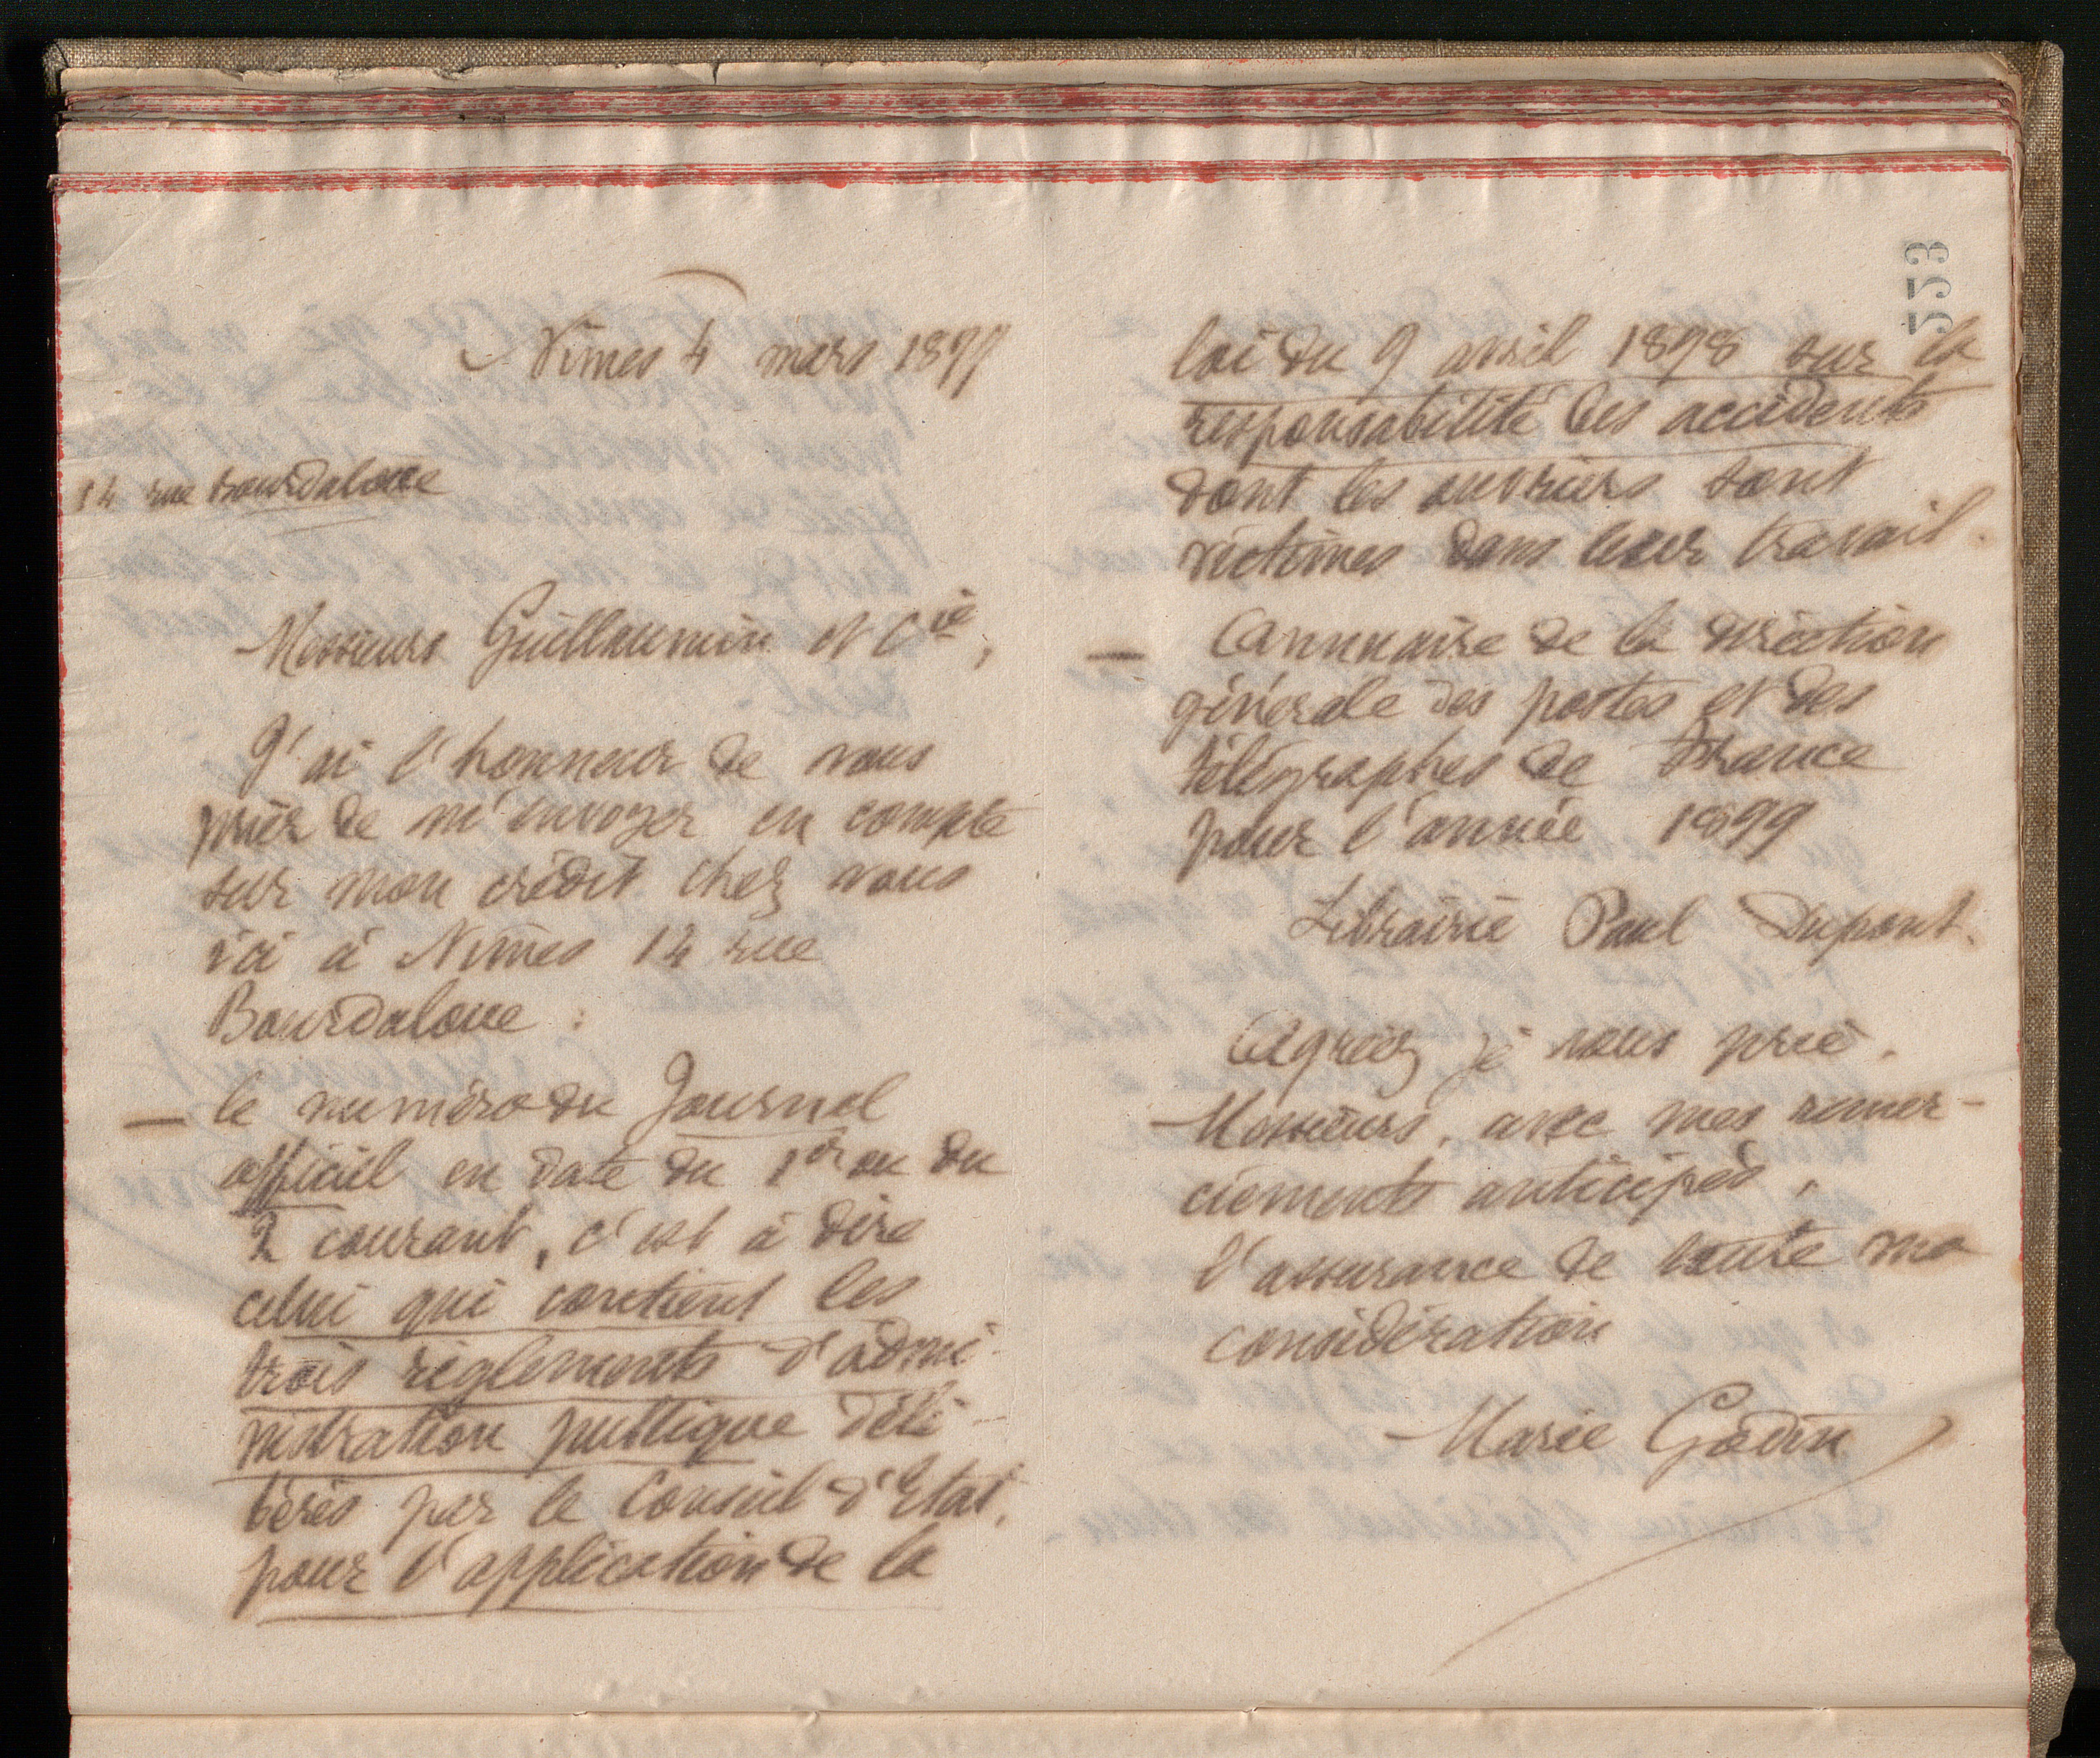 Nimes 4 mars 1899
14 rue Bourdaloue
Messieurs Guillaumin et Cie,
J'ai l'honneur de vous
prier de m'envoyer en compte
sur mon crédit chez vous
ici à Nimes 14 rue
Bourdaloue :
— le numéro du Journal
officiel en date du 1er ou du
2 courant, c'est à dire
celui qui contient les
trois règlements d'admi-
nistration publique déli-
bérés par le Conseil d'Etat,
pour l'application de la
553
loi du 9 avril 1898 sur la
responsabilité des accidents
dont les ouvriers sont
victimes dans leur travail.
— Annuaire de la direction
générale des postes et des
télégraphes de France
pour l'année 1899
Librairie Paul Dupont.
Agréez je vous prie,
Messieurs, avec mes remer-
ciements anticipés,
l'assurance de toute ma
considération
Marie Godin